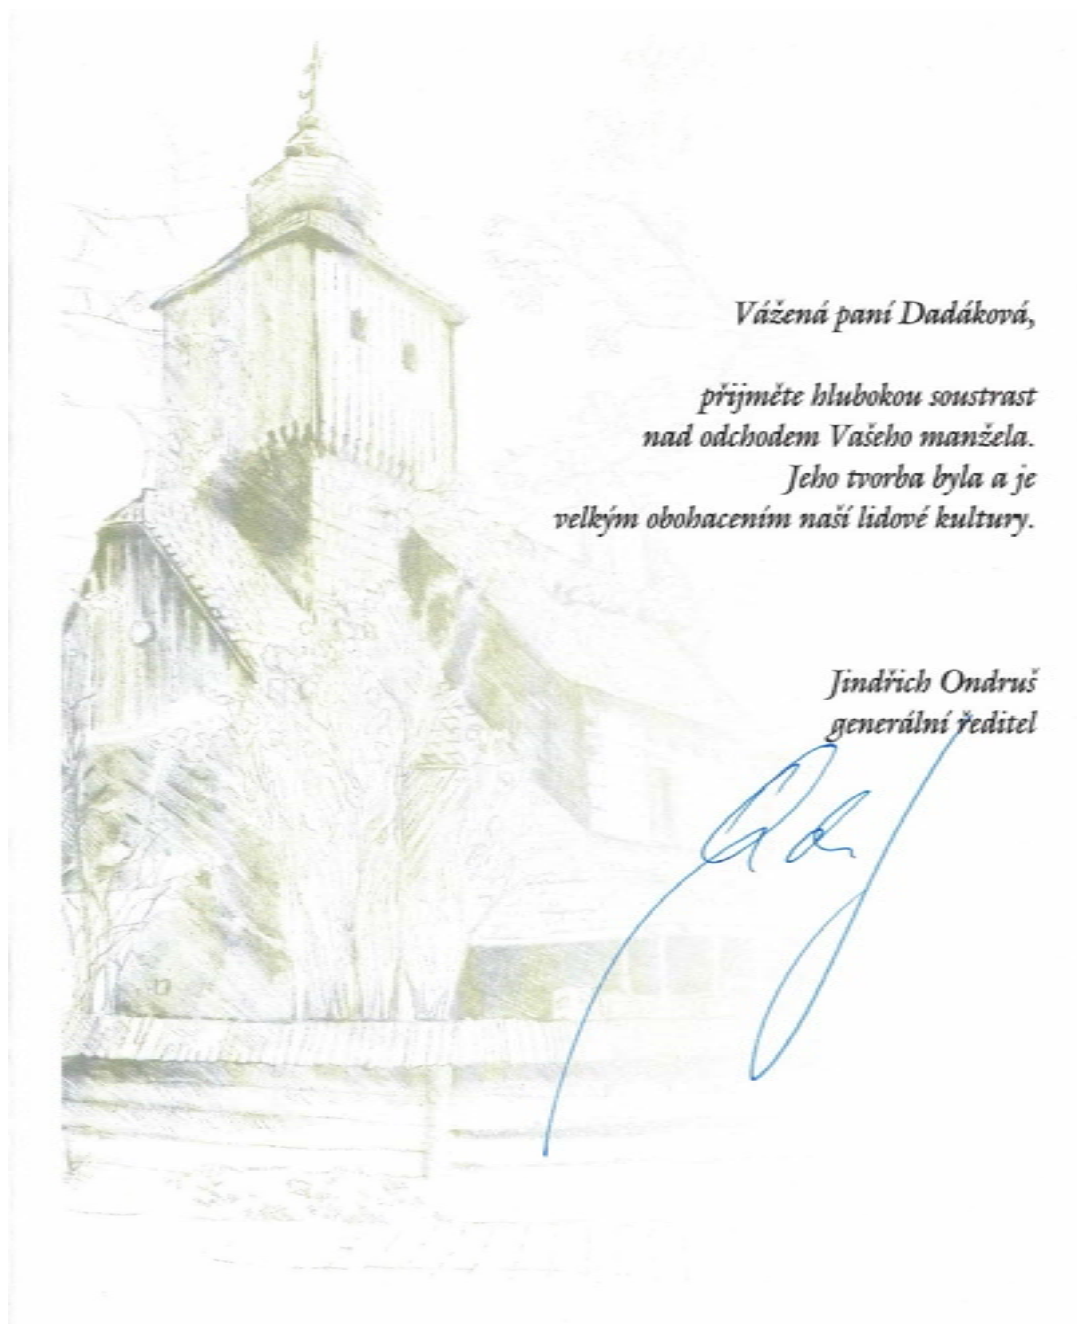 Vážená paní Dadáková,
přijměte hlubokou soustrast
nad odchodem Vašeho manžela.
Jeho tvorba byla a je
velkým obohacením naší lidové kultury.
Jindřich Ondruš
generální ředitel